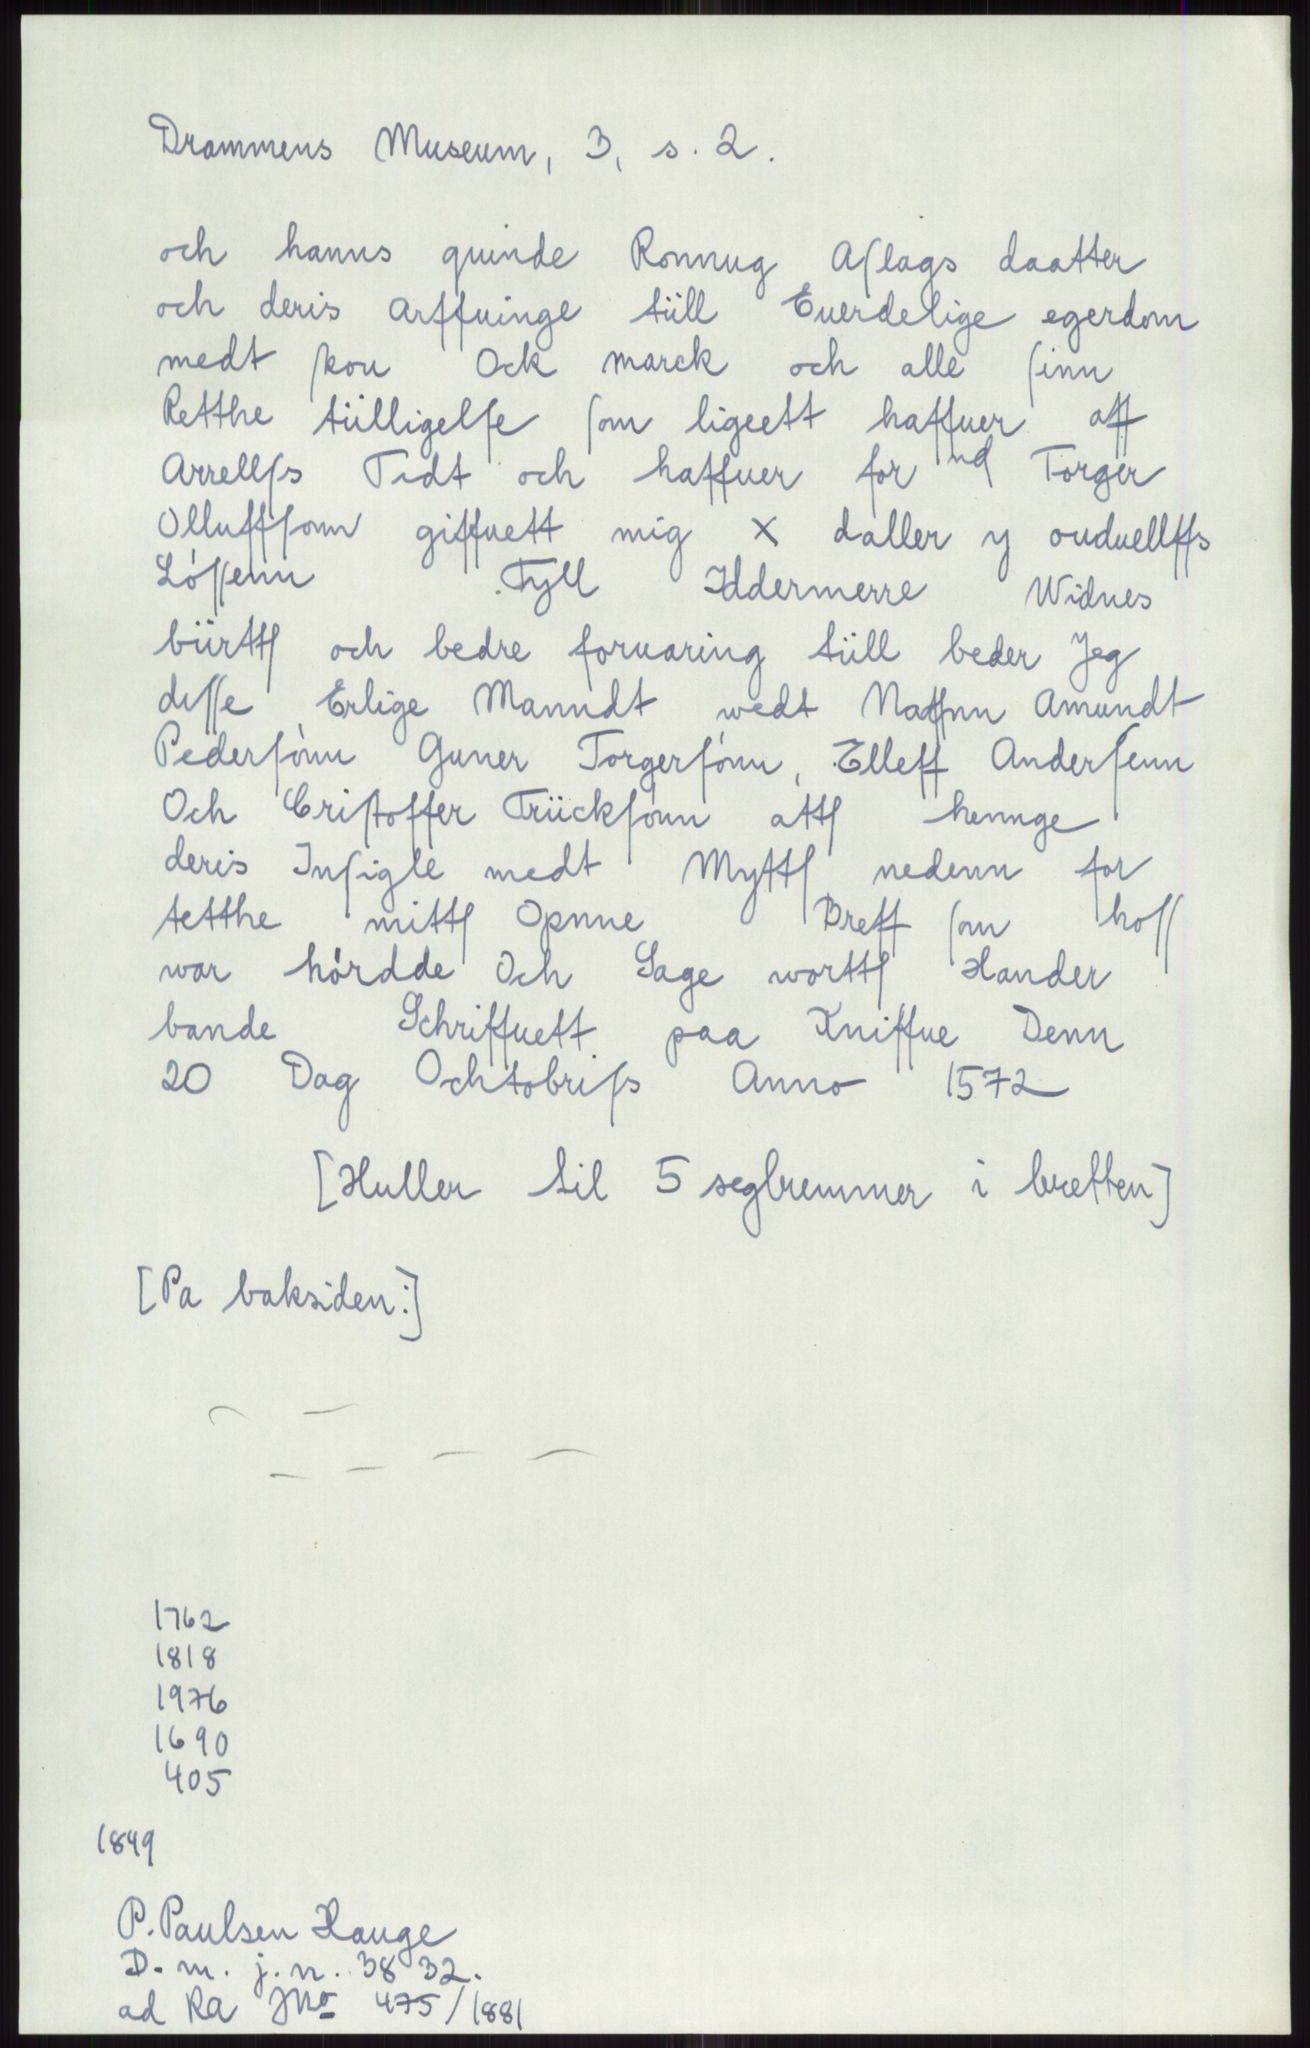 Drammens Museum, 3, s. 2.
och hanns quinde Ronnug Aſlags daatter
och deris arffuinge tüll Euerdelige egerdom
medt ſkou Ock marck och alle ſinn
Retthe tülligelſe ſom ligeett haffuer aff
Arrellſs Tidt och haffuer for nd Torger
Olluffſonn giffuett mig X daller y ouduellffs
Lóſſenn Tyll Yddermerre Widnes
bürttſ och bedre foruaring tüll beder Jeg
diſſe Erlige Manndt wedt Naffnn Amundt
Pederſónn Guner Torgerſónn, Elleff Anderſenn
Och Criſtoffer Trückſónn attſ hennge
deris Inſigle medt Myttſ nedenn for
tetthe mittſ Opnne Breff ſom hoſſ
war hórdde Och Sage worttſ Hander
bande Schriffuett paa Kniffue Denn
20 Dag Ochtobriſs Anno 1572
[Huller til 5 seglremmer i bretten]
[Pa baksiden:]
1762
1818
1976
1690
405
1849
P. Paulsen Hauge
D. m. j. n. 3832.
ad RA JNo 475/1881